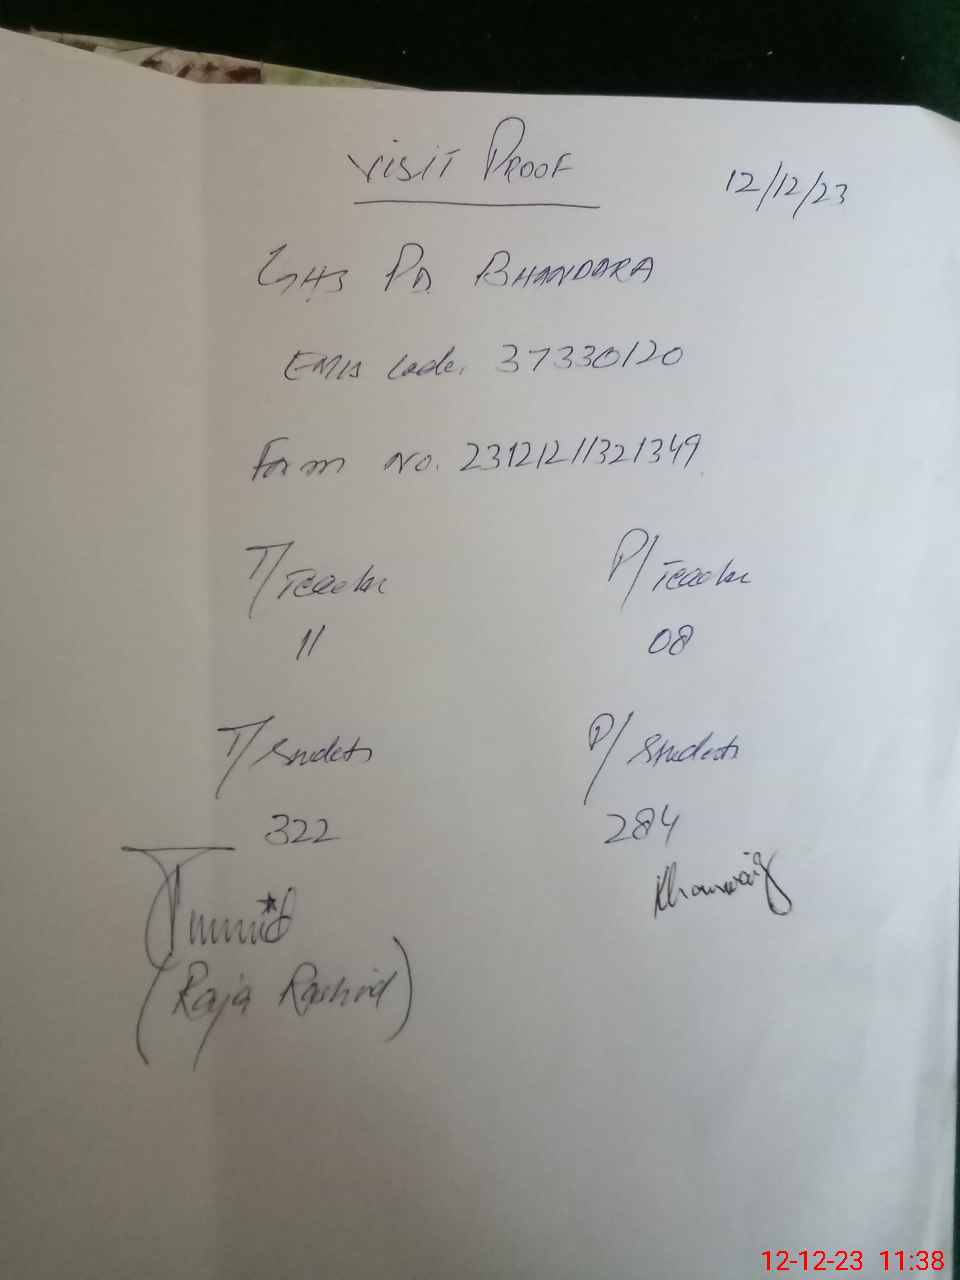 Visit Proof
12/12/23
GHS PD. BHANDARA
EMIS Code. 37330120
Form No. 23121211321349
T/Teacher P/Teacher
11 08
T/Students P/Students
322 284
(Raja Rashid)
12-12-23 11:38